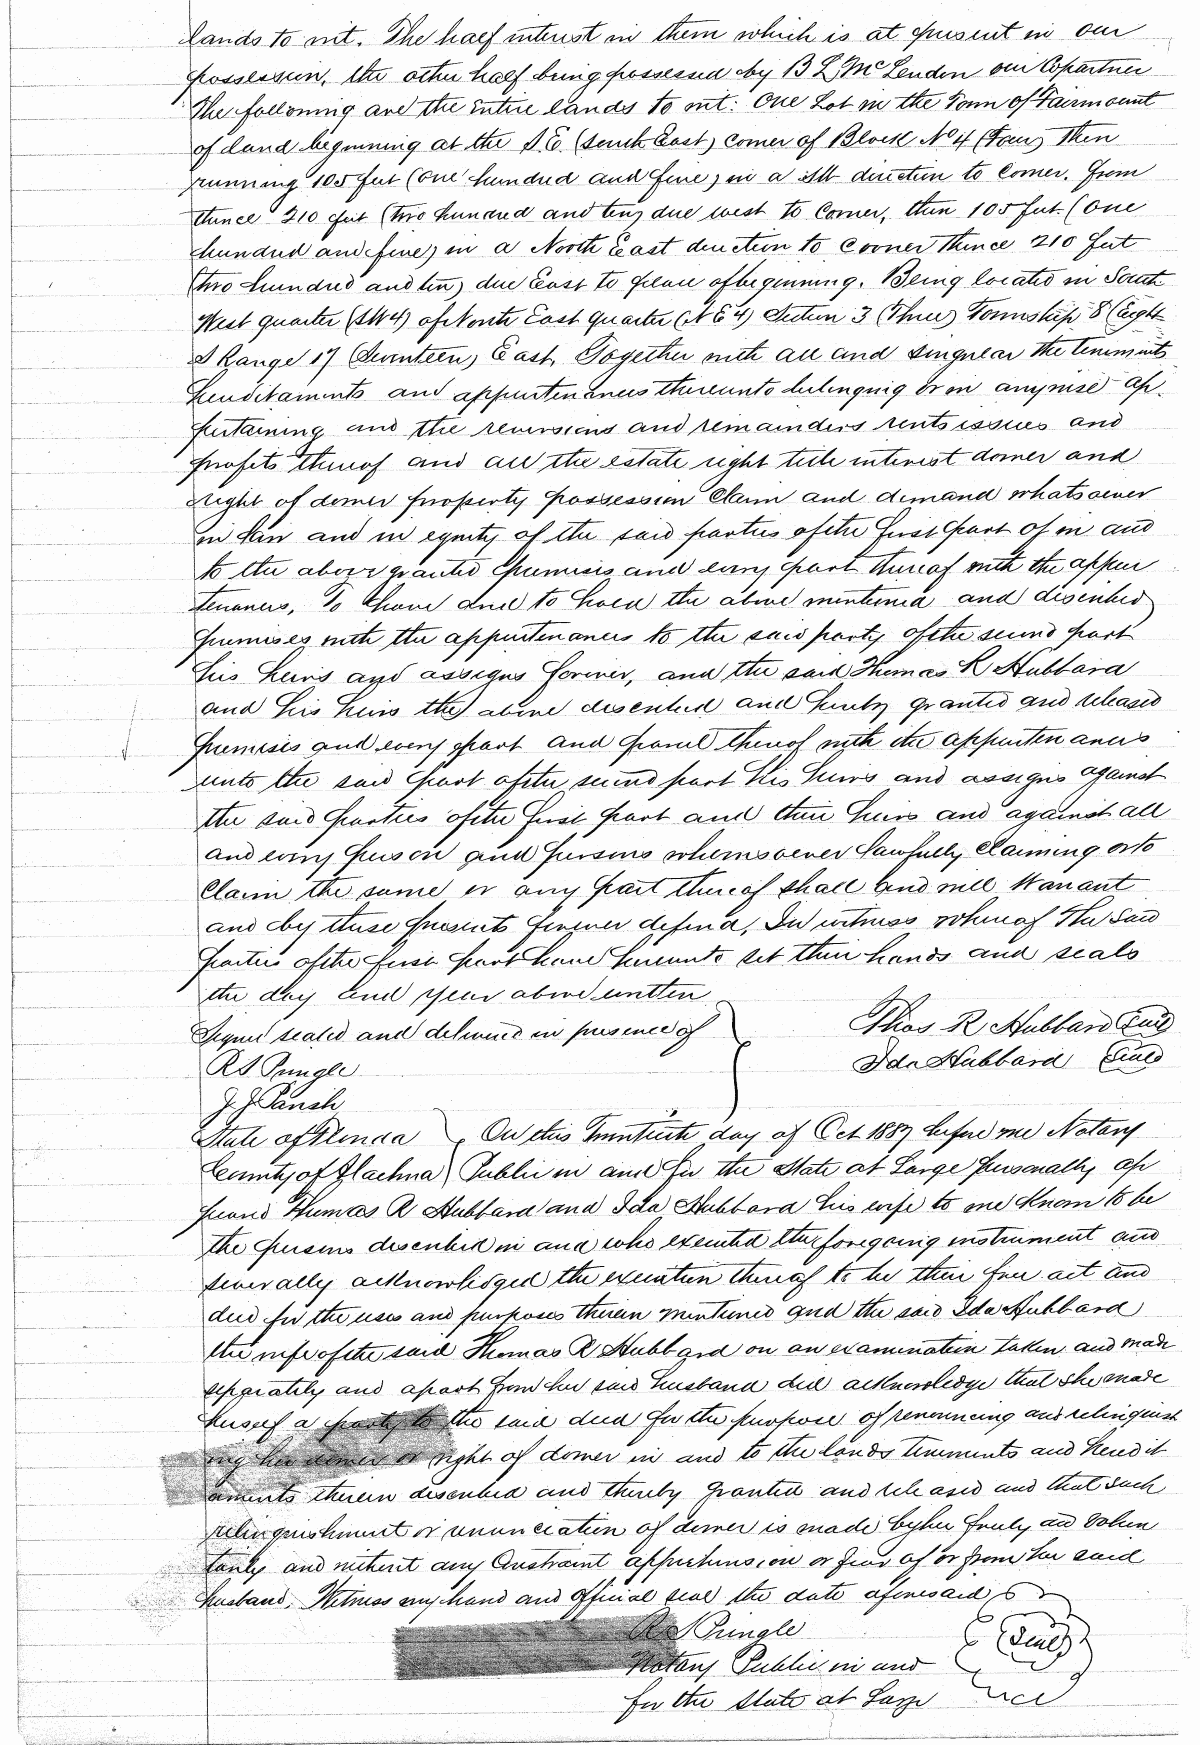 lands to wit. The half interest in them which is at present in our
possession, the other half being possessed by B L McLendon our Copartner
The following are the entire lands to wit: One Lot in the Town of Fairmount
of land beginning at the S.E. (South East) corner of Block No 4 (Four) Then
running 105 feet (one hundred and five) in a SW direction to corner. From
thence 210 feet (two hundred and ten) due west to corner, then 105 feet (one
hundred and five) in a North East direction to corner thence 210 feet
(two hundred and ten) due East to place of beginning. Being located in South
West quarter (SW4) of North East quarter (NE4) Section 3 (Three) Township 8 (Eight
S Range 17 (Seventeen) East, Together with all and singular the tenements
hereditaments and appurtenances thereunto belonging or in anywise ap-
pertaining and the reversions and remainders rents issues and
profits thereof and all the estate right title interest dower and
right of dower property possession claim and demand whatsoever
in law and in equity of the said parties of the first part of in and
to the above granted premises and every part thereof with the appur
tenances, To have and to hold the above mentioned and described
premises with the appurtenances to the said party of the second part
his heirs and assigns forever, and the said Thomas R Hubbard
and his heirs the above described and hereby granted and released
premises and every part and parcel thereof with the appurtenances
unto the said part of the second part his heirs and assigns against
the said parties of the first part and their heirs and against all
and every person and persons whomsoever lawfully claiming or to
claim the same or any part thereof shall and will Warrant
and by these presents forever defend, In witness whereof the said
parties of the first part have hereunto set their hands and seals
the day and year above written
Signed sealed and delivered in presence of
Thos R Hubbard (Seal)
R S Pringle
Ida Hubbard (Seal)
J. J. Parish
State of Florida } On this Twentieth day of Oct 1887 before me Notary
County of Alachua } Public in and for the State at Large personally ap
peared Thomas R Hubbard and Ida Hubbard his wife to me known to be
the persons described in and who executed the foregoing instrument and
severally acknowledged the execution thereof to be their free act and
deed for the uses and purposes therein mentioned and the said Ida Hubbard
the wife of the said Thomas R Hubbard on an examination taken and made
separately and apart from her said husband did acknowledge that she made
herself a party to the said deed for the purpose of renouncing and relinquish
ing her dower or right of dower in and to the lands tenements and heredit
aments therein described and thereby granted and released and that such
relinquishment or renunciation of dower is made by her freely and volun
tarily and without any constraint apprehension or fear of or from her said
husband. Witness my hand and official seal the date aforesaid
R S Pringle
(Seal)
Notary Public in and
for the State at Large